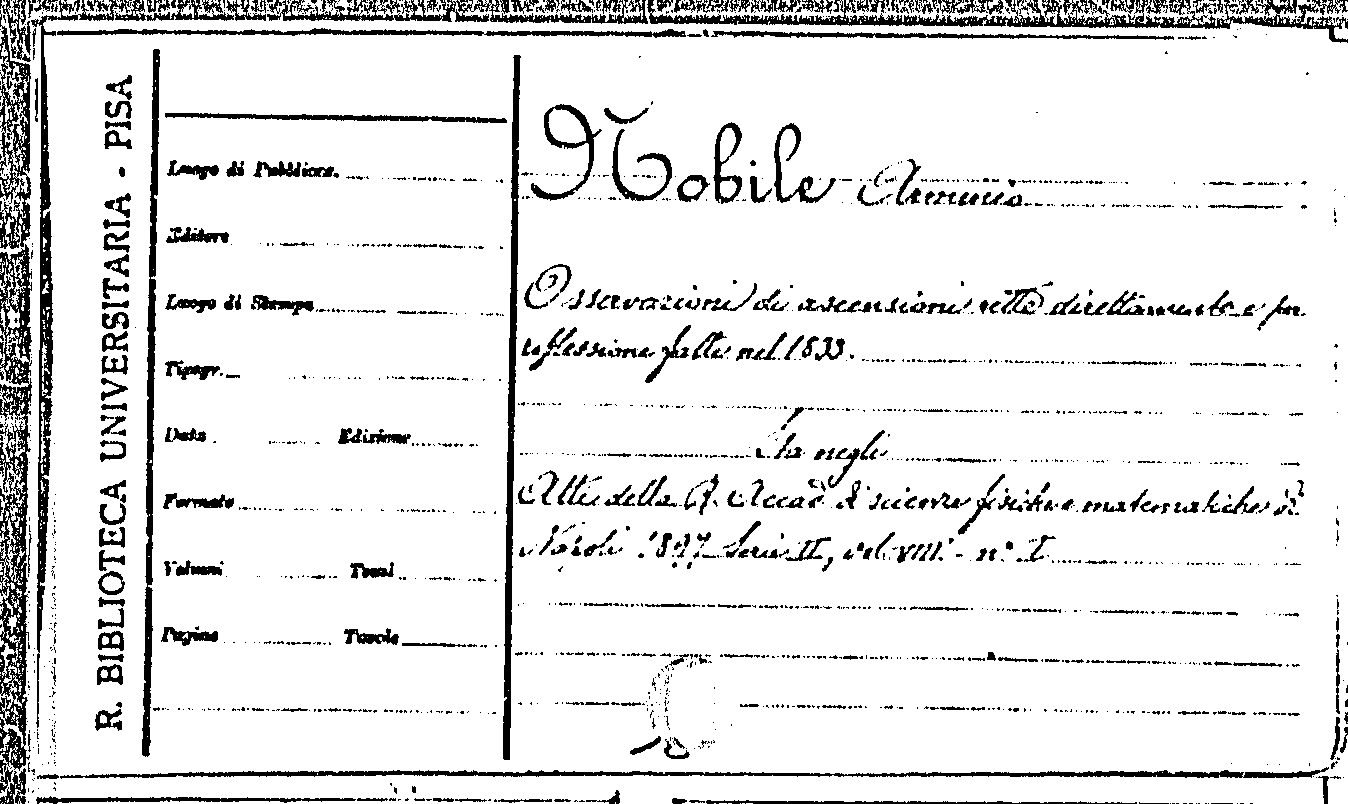 R. BIBLIOTECA UNIVERSITARIA - PISA
Luogo di Pubblicaz.
Editore
Luogo di Stampa
Tipogr.
Data Edizione
Formato
Volumi Tomi
Pagine Tavole
Nobile Arminio
Osservazioni di ascensioni rette direttamente e per
riflessione fatte nel 1833.
Sta negli
Atti della R. Accad di scienze fisiche e matematiche di
Napoli 1897 Serie II, vol. VIII - n° I